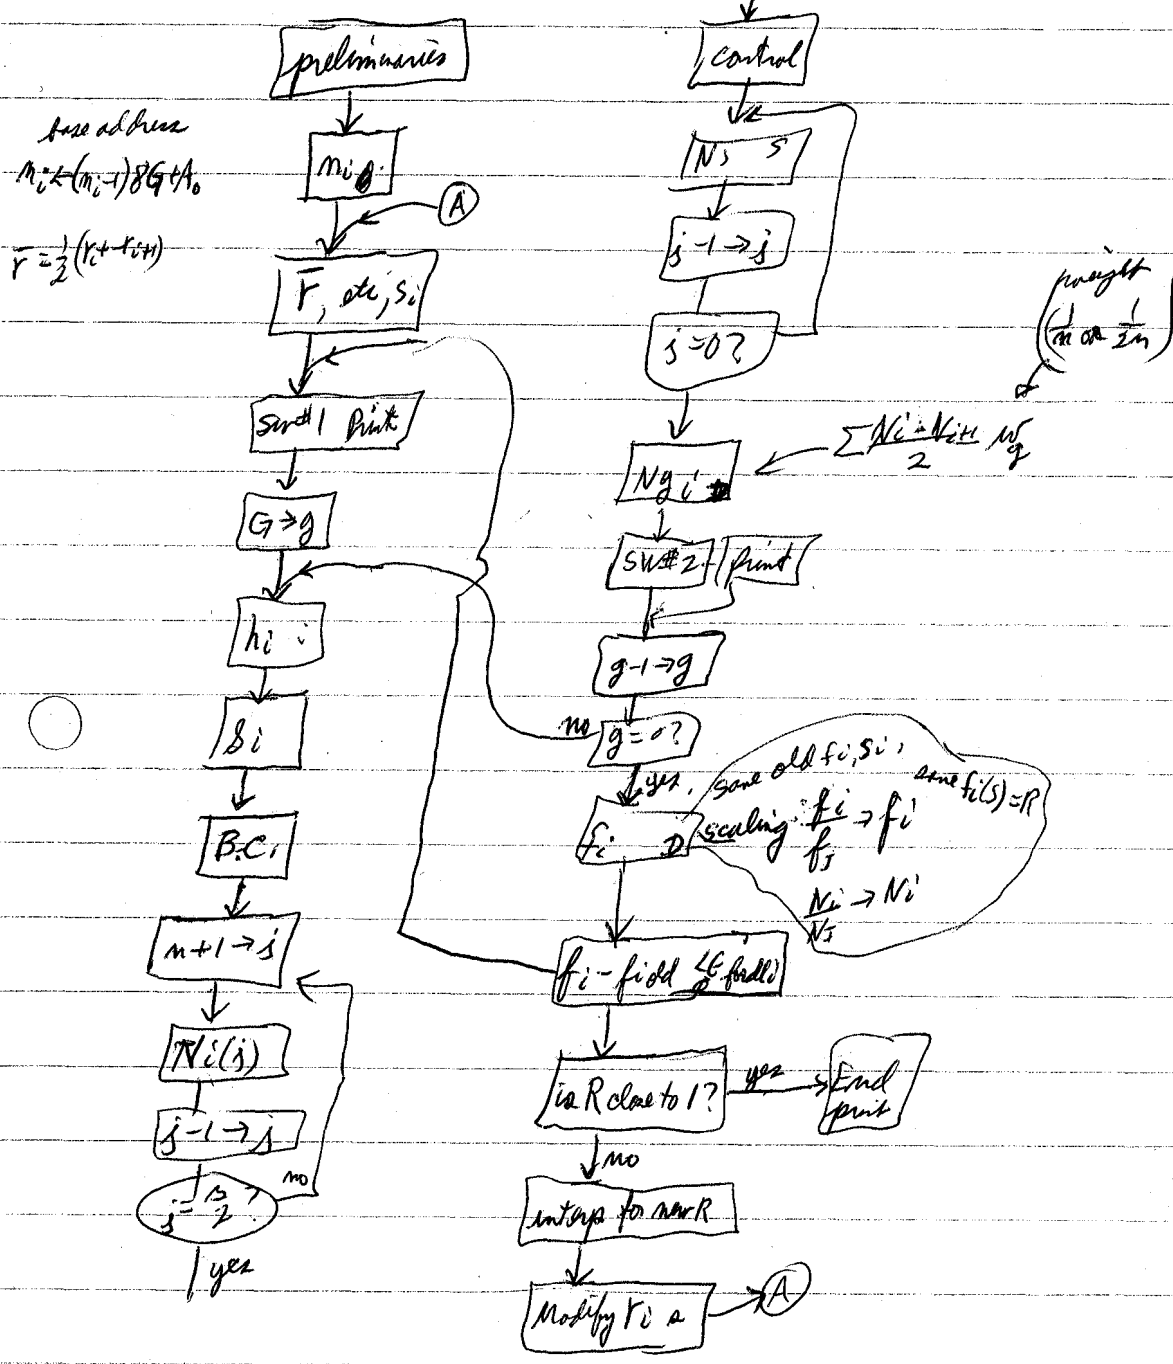 preliminaries
base address
n_i ← (n_i-1) 8G+A_0
n_i g.
A
r̄ = 1/2 (r_i + r_i+1)
r̄, etc, s_i
sw#1 Print
G → g
h_i
S_i
B.C.
n+1 → j
N_i(j)
j-1 → j
j = n/2 ?
no
yes
control
N_j s
j-1 → j
j=0?
weight
(1/n or 1/2n)
Σ N_i - N_i+1 / 2 w_g
N_g i
SW#2 - Print
g-1 → g
no
g=0?
yes
f_i
save old f_i, s_i,
save f_i(s) = R
scaling: f_i / f_J → f_i
N_i / N_J → N_i
f_i - f_i old ≤ε for all i
is R close to 1?
yes
End
print
no
interp for new R
Modify r_i s
A